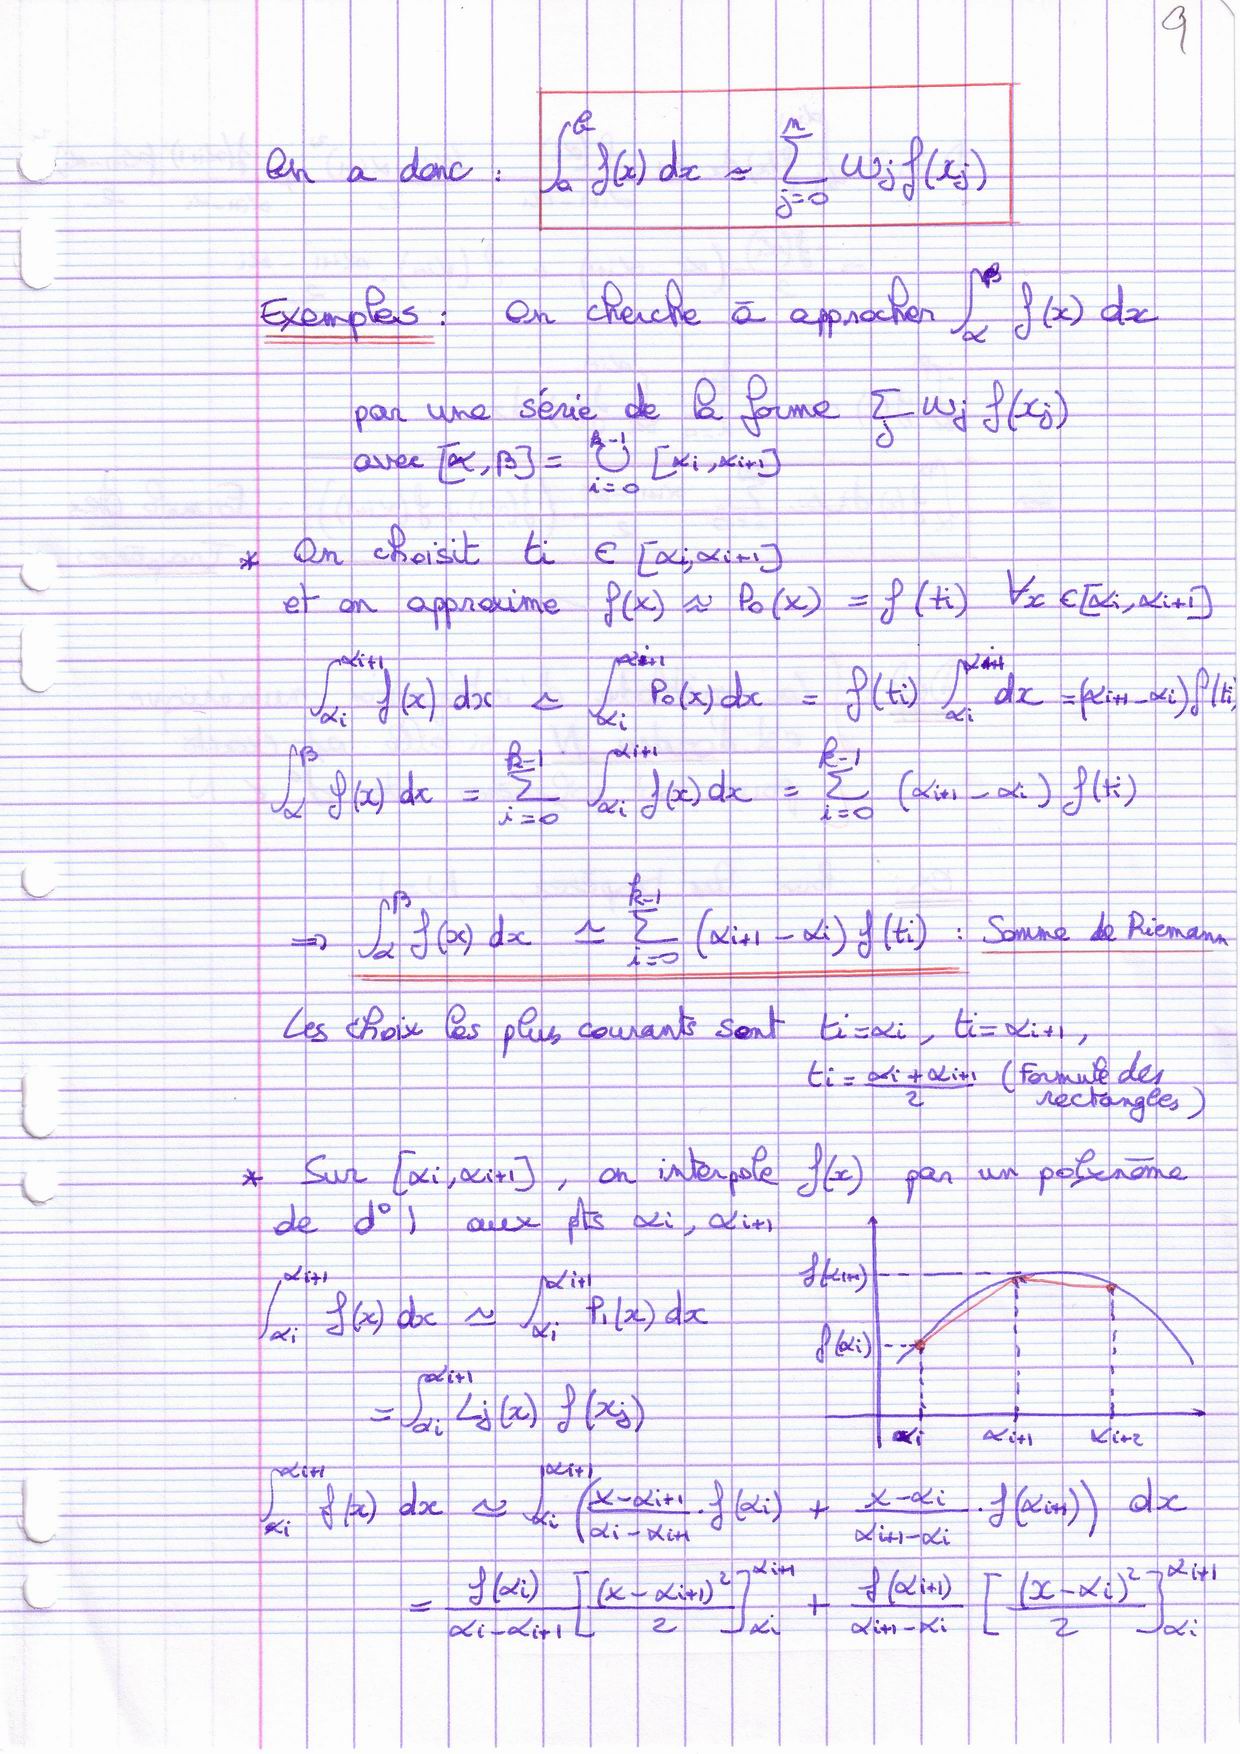 9
On a donc : ∫_a^b f(x) dx ≃ Σ_{j=0}^{n} w_j f(x_j)
Exemples : On cherche à approcher ∫_α^β f(x) dx
par une série de la forme Σ_j w_j f(x_j)
avec [α, β] = ∪_{i=0}^{k-1} [α_i, α_{i+1}]
* On choisit t_i ∈ [α_i, α_{i+1}]
et on approxime f(x) ≈ P_0(x) = f(t_i) ∀x ∈ [α_i, α_{i+1}]
∫_{α_i}^{α_{i+1}} f(x) dx ≃ ∫_{α_i}^{α_{i+1}} P_0(x) dx = f(t_i) ∫_{α_i}^{α_{i+1}} dx = (α_{i+1} - α_i) f(t_i)
∫_α^β f(x) dx = Σ_{i=0}^{k-1} ∫_{α_i}^{α_{i+1}} f(x) dx = Σ_{i=0}^{k-1} (α_{i+1} - α_i) f(t_i)
⇒ ∫_α^β f(x) dx ≃ Σ_{i=0}^{k-1} (α_{i+1} - α_i) f(t_i) : Somme de Riemann
Les choix les plus courants sont t_i = α_i, t_i = α_{i+1},
t_i = (α_i + α_{i+1})/2 (Formule des
rectangles)
* Sur [α_i, α_{i+1}], on interpole f(x) par un polynôme
de d° 1 aux pts α_i, α_{i+1}
f(α_{i+1})
∫_{α_i}^{α_{i+1}} f(x) dx ≃ ∫_{α_i}^{α_{i+1}} P_1(x) dx
f(α_i)
= ∫_{α_i}^{α_{i+1}} L_j(x) f(x_j)
α_i α_{i+1} α_{i+2}
∫_{α_i}^{α_{i+1}} f(x) dx ≃ ∫_{α_i}^{α_{i+1}} ((x - α_{i+1})/(α_i - α_{i+1}) . f(α_i) + (x - α_i)/(α_{i+1} - α_i) . f(α_{i+1})) dx
= f(α_i)/(α_i - α_{i+1}) [(x - α_{i+1})²/2]_{α_i}^{α_{i+1}} + f(α_{i+1})/(α_{i+1} - α_i) [(x - α_i)²/2]_{α_i}^{α_{i+1}}